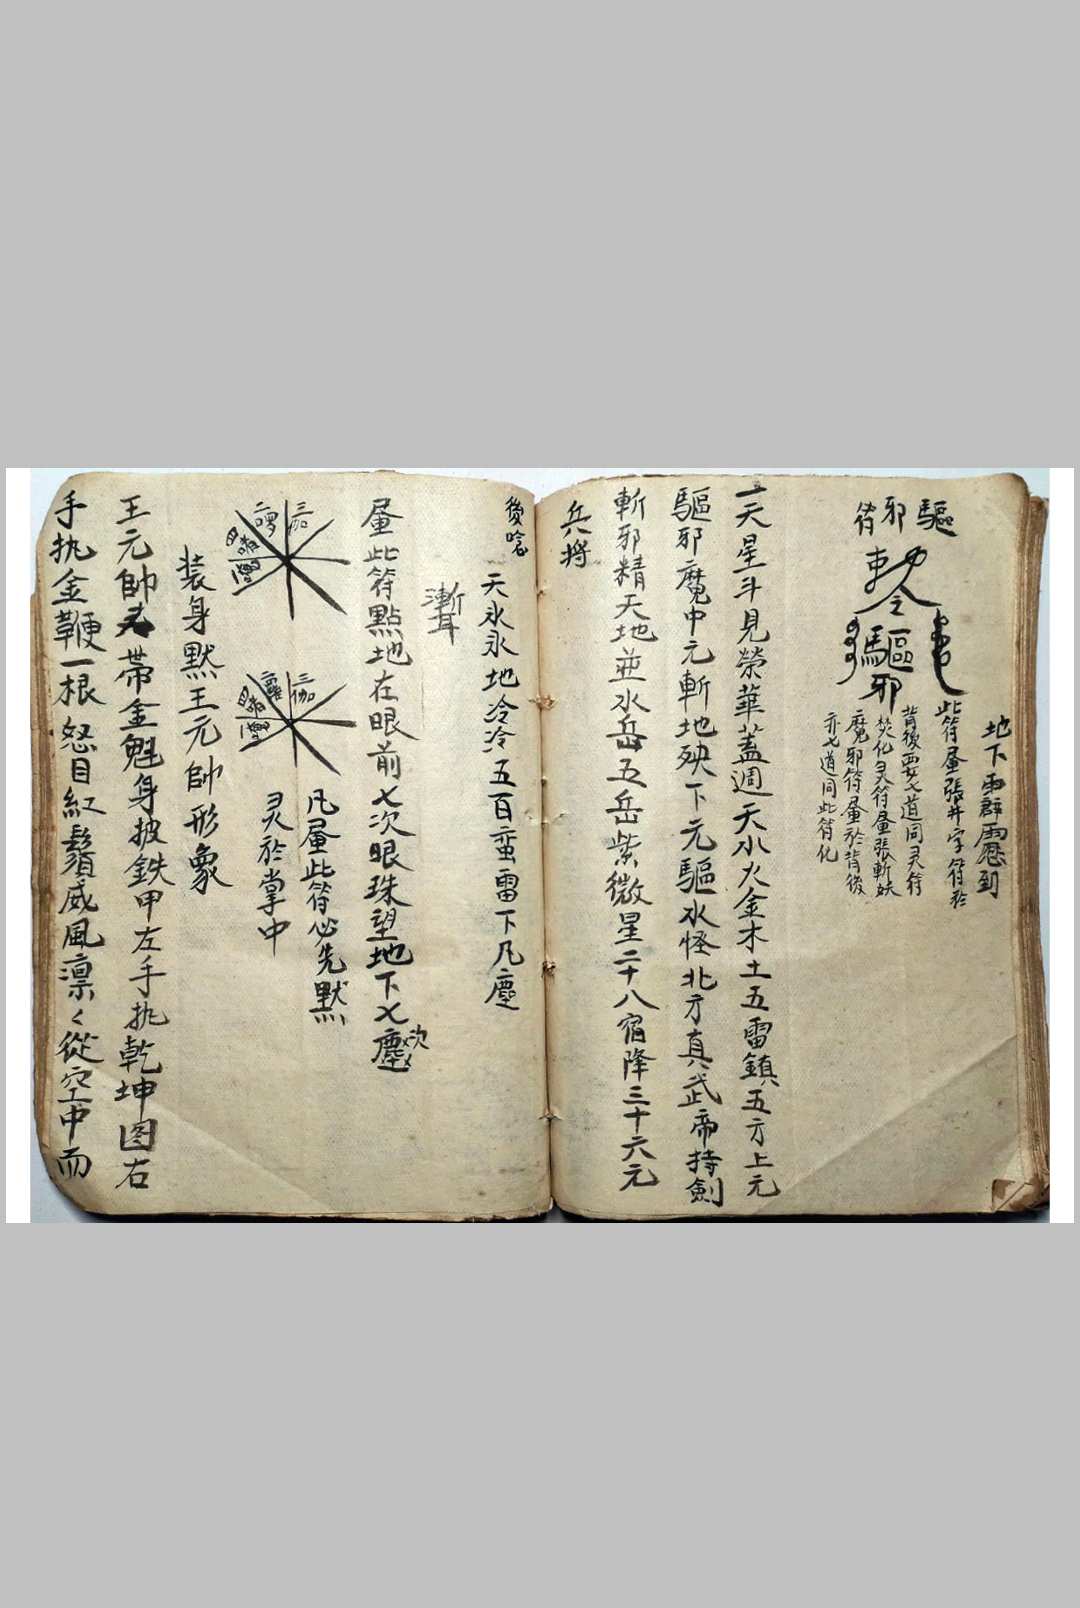 驅邪符
勅令驅邪
地下雨群靂到
此符畫張井字符於
背後要七道同灵符
焚化灵符畫張斬妖
魔邪符畫於背後
亦七道同此符化
一天星斗見榮華蓋週天水火金木土五雷鎮五方上元
驅邪魔中元斬地殃下元驅水怪北方真武帝持劍
斬邪精天地並水岳五岳紫微星二十八宿降三十六元
兵將
後唸
天氷氷地冷冷五百蛮雷下凡塵
聻
畫此符點地在眼前七次眼珠望地下七塵次
三加
四啫
三伽
四啫
凡畫此符必先黙
灵於掌中
装身黙王元帥形象
王元帥帯金魁身披鉄甲左手执乾坤图右
手执金鞭一根怒目紅鬚威風凛く從空中而